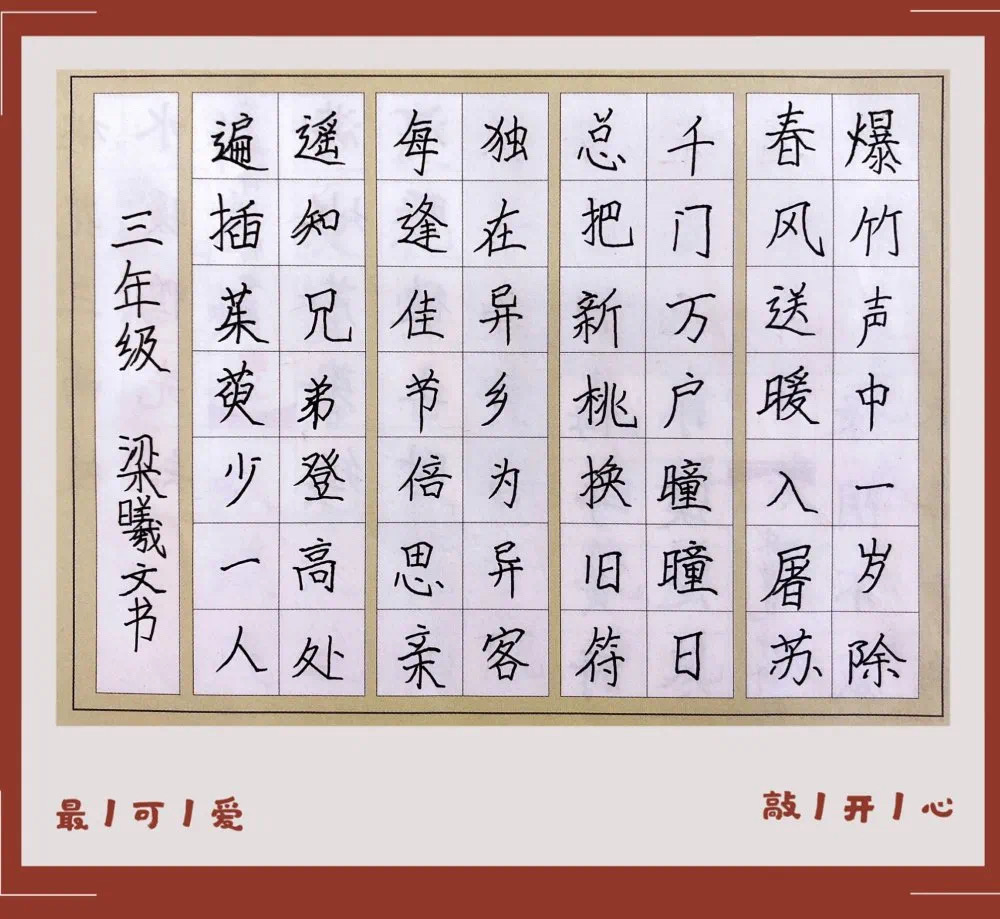 爆竹声中一岁除
春风送暖入屠苏
千门万户瞳瞳日
总把新桃换旧符
独在异乡为异客
每逢佳节倍思亲
遥知兄弟登高处
遍插茱萸少一人
三年级 梁曦文书
最丨可丨爱
敲丨开丨心